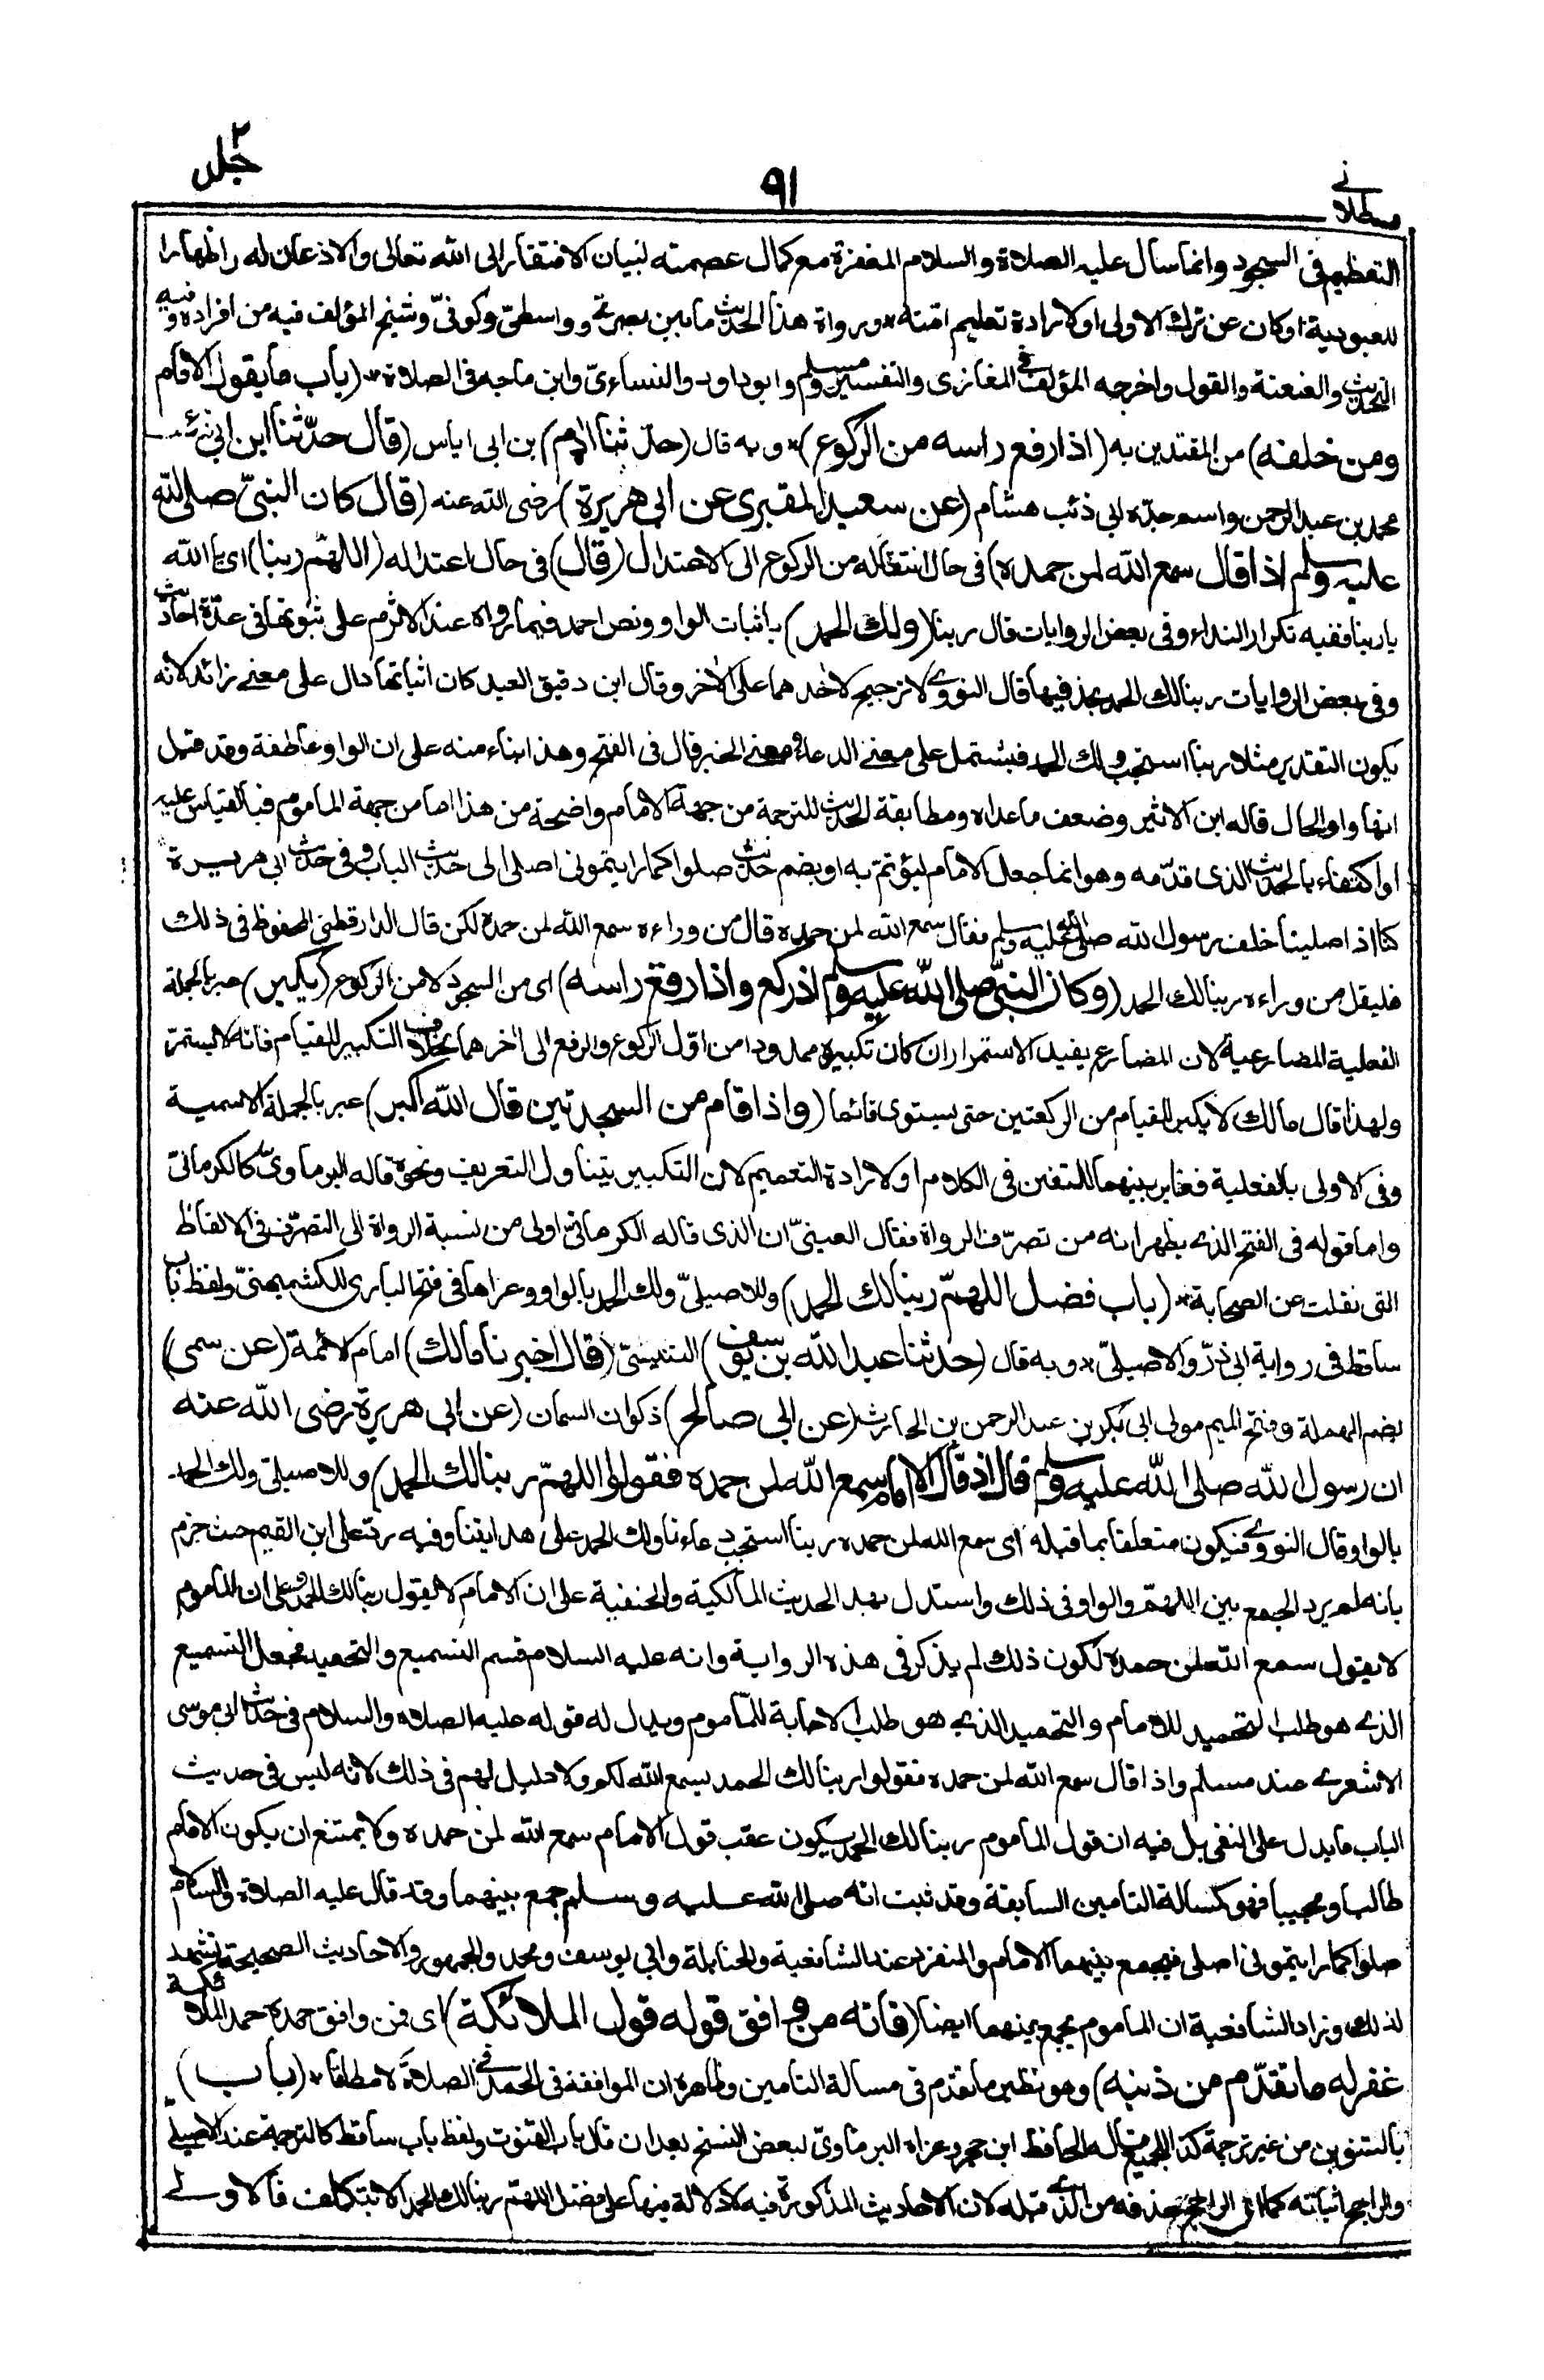 قسطلانے
٩١
جلد ٢
التعظيم فى السجود وانما سأل عليه الصلاة والسلام المغفرة مع كمال عصمته لبيان الافتقار الى الله تعالى والاذعان له واظهارا
للعبودية اوكان عن ترك الاولى اولارادة تعليم امته * ورواة هذا الحديث ما بين بصرىّ وواسطىّ وكوفىّ وشيخ المؤلف فيه من افراده وفيه
التحديث والعنعنة والقول واخرجه المؤلف فى المغازى والتفسير ومسلم وابوداود والنساءىّ وابن ماجه فى الصلاة * (باب ما يقول الامام
ومن خلفه) من المقتدين به (اذا رفع راسه من الركوع) * وبه قال (حدّثنا ادم) بن ابى اياس (قال حدّثنا ابن ابى ذئب
محمد بن عبد الرحمن واسم جدّه ابى ذئب هشام (عن سعيد المقبرى عن ابى هريرة) رضى الله عنه (قال كان النبىّ صلى الله
عليه وسلم اذا قال سمع الله لمن حمده) فى حال انتقاله من الركوع الى الاعتدال (قال) فى حال اعتداله (اللهمّ ربنا) اى يا الله
يا ربنا ففيه تكرار النداء وفى بعض الروايات قال ربنا (ولك الحمد) باثبات الواو ونص احمد فيما رواه عنه الاثرم على ثبوتها فى عدّة احاديث
وفى بعض الروايات ربنا لك الحمد بحذفها قال النووىّ لا ترجيح لاحدهما على الاخر وقال ابن دقيق العيد كان اثباتها دال على معنے زائد لانه
يكون التقدير مثلا ربنا استجب ولك الحمد فيشتمل على معنے الدعاء ومعنے الخبر قال فى الفتح وهذا بناء منه على ان الواو عاطفة وقد قيل
انها واو الحال قاله ابن الاثير وضعف ما عداه ومطابقة الحديث للترجمة من جهة الامام واضحة من هذا اما من جهة الماموم فبالقياس عليه
او اكتفاء بالحديث الذى قدّمه وهو انما جعل الامام ليؤتمّ به او بضم حديث صلوا كما رايتمونى اصلى الى حديث الباب وفى حديث ابى هريرة
كنا اذا صلينا خلف رسول الله صلى الله عليه وسلم فقال سمع الله لمن حمده قال من وراءه سمع الله لمن حمده لكن قال الدارقطنى المحفوظ فى ذلك
فليقل من وراءه ربنا لك الحمد (وكان النبىّ صلى الله عليه وسلم اذا ركع واذا رفع راسه) اى من السجود لا من الركوع (يكبر) عبر بالجملة
الفعلية المضارعية لان المضارع يفيد الاستمرار ان كان تكبيره ممدودا من اوّل الركوع والرفع الى اخرهما بخلاف التكبير للقيام فانه لا يستمرّ
ولهذا قال مالك لا يكبر للقيام من الركعتين حتى يستوى قائما (واذا قام من السجدتين قال الله اكبر) عبر بالجملة الاسمية
وفى الاولى بالفعلية فغاير بينهما للتفنن فى الكلام او لارادة التعميم لان التكبير يتناول التعريف ونحوه قاله البرماوىّ كالكرمانىّ
واما قوله فى الفتح الذے يظهر انه من تصرّف الرواة فقال العينىّ ان الذى قاله الكرمانىّ اولى من نسبة الرواة الى التصرّف فى الالفاظ
التى نقلت عن الصحابة * (باب فضل اللهمّ ربنا لك الحمد) وللاصيلىّ ولك الحمد بالواو وعزاها فى فتح البارى للكشميهنىّ ولفظ باب
ساقط فى رواية ابى ذرّ والاصيلىّ * وبه قال (حدثنا عبد الله بن يوسف) التنيسىّ (قال اخبرنا مالك) امام الائمة (عن سمى)
بضم المهملة وفتح الميم مولى ابى بكر بن عبد الرحمن بن الحارث (عن ابى صالح) ذكوان السمان (عن ابى هريرة رضى الله عنه
ان رسول الله صلى الله عليه وسلم قال اذا قال الامام سمع الله لمن حمده فقولوا اللهمّ ربنا لك الحمد) وللاصيلىّ ولك الحمد
بالواو وقال النووىّ فيكون متعلقا بما قبله اى سمع الله لمن حمده ربنا استجب دعاءنا ولك الحمد على هدايتنا وفيه ردّ على ابن القيم حيث جزم
بانه لم يرد الجمع بين اللهمّ والواو فى ذلك واستدل بهذا الحديث المالكية والحنفية على ان الامام لا يقول ربنا لك الحمد وعلى ان الماموم
لا يقول سمع الله لمن حمده لكون ذلك لم يذكر فى هذه الرواية وانه عليه السلام قسم التسميع والتحميد فجعل التسميع
الذے هو طلب التحميد للامام والتحميد الذے هو طلب الاجابة للماموم ويدل له قوله عليه الصلاة والسلام فى حديث ابى موسى
الاشعرے عند مسلم واذا قال سمع الله لمن حمده فقولوا ربنا لك الحمد يسمع الله لكم ولا دليل لهم فى ذلك لانه ليس فى حديث
الباب ما يدل على النفى بل فيه ان قول الماموم ربنا لك الحمد يكون عقب قول الامام سمع الله لمن حمده ولا يمتنع ان يكون الامام
طالبا ومجيبا فهو كمسالة التامين السابقة وقد ثبت انه صلى الله عليه وسلم جمع بينهما وقد قال عليه الصلاة والسلام
صلوا كما رايتمونى اصلى فيجمع بينهما الامام والمنفرد عند الشافعية والحنابلة وابى يوسف ومحمد والجمهور والاحاديث الصحيحة تشهد
لذلك وزاد الشافعية ان الماموم يجمع بينهما ايضا (فانه من وافق قوله قول الملائكة) اى فمن وافق حمده حمد الملائكة
غفر له ما تقدّم من ذنبه) وهو نظير ما تقدّم فى مسالة التامين وظاهره ان الموافقة فى الحمد فى الصلاة لا مطلقا * (باب)
بالتنوين من غير ترجمة كذا للجميع قاله الحافظ ابن حجر وعزاه البرماوىّ لبعض النسخ بعد ان قال باب القنوت ولفظ باب ساقط كالترجمة عند الاصيلىّ
والراجح اثباته كما ان الراجح حذفه من الذى قبله لان الاحاديث المذكورة فيه لا دلالة فيها على فضل اللهم ربنا لك الحمد الا بتكلف فالاولے